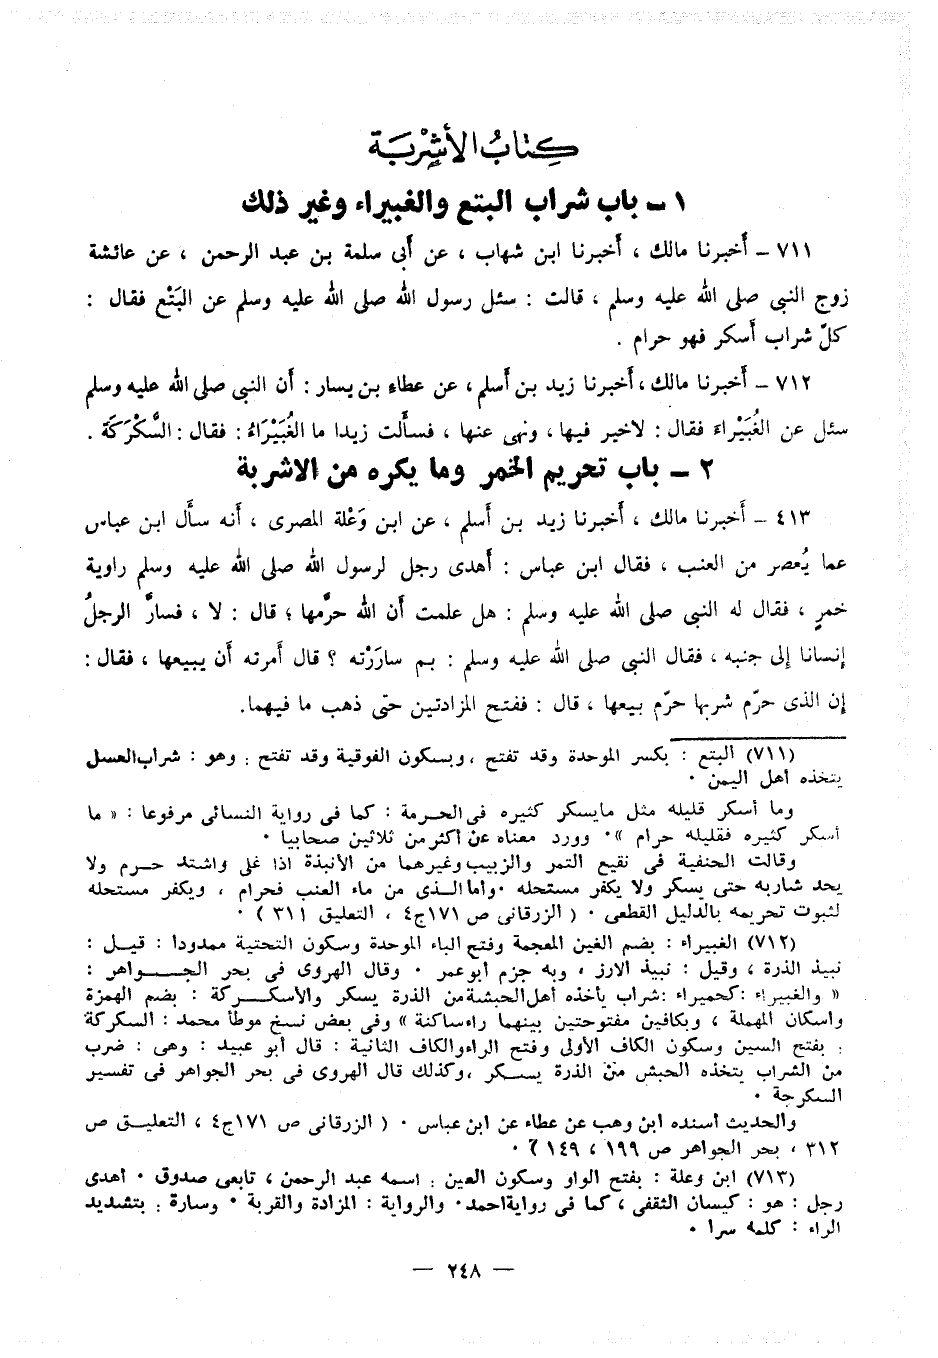 كتابُ الأشْرِبَة
١ - باب شراب البتع والغبيراء وغير ذلك
٧١١ - أخبرنا مالك ، أخبرنا ابن شهاب ، عن أبى سلمة بن عبد الرحمن ، عن عائشة
زوج النبى صلى الله عليه وسلم ، قالت : سئل رسول الله صلى الله عليه وسلم عن البَتْع فقال :
كلّ شراب أسكر فهو حرام .
٧١٢ - أخبرنا مالك ، أخبرنا زيد بن أسلم ، عن عطاء بن يسار : أن النبى صلى الله عليه وسلم
سئل عن الغُبَيْراء فقال : لاخير فيها ، ونهى عنها ، فسألت زيدا ما الغُبَيْرَاءُ : فقال : السُّكْرَكَة .
٢ - باب تحريم الخمر وما يكره من الاشربة
٤١٣ - أخبرنا مالك ، أخبرنا زيد بن أسلم ، عن ابن وَعْلة المصرى ، أنه سأَل ابن عباس
عما يُعصر من العنب ، فقال ابن عباس : أهدى رجل لرسول الله صلى الله عليه وسلم راوية
خمرٍ ، فقال له النبى صلى الله عليه وسلم : هل علمت أن الله حرَّمها ؛ قال : لا ، فسارَّ الرجلُ
إنسانا إلى جنبه ، فقال النبى صلى الله عليه وسلم : بم سارَرْته ؟ قال أمرته أن يبيعها ، فقال :
إن الذى حرّم شربها حرّم بيعها ، قال : ففتح المزادتين حتى ذهب ما فيهما.
(٧١١) البتع : بكسر الموحدة وقد تفتح ، وبسكون الفوقية وقد تفتح : وهو : شراب العسل
يتخذه أهل اليمن .
وما أسكر قليله مثل مايسكر كثيره فى الحرمة : كما فى رواية النسائى مرفوعا : « ما
أسكر كثيره فقليله حرام » . وورد معناه عن أكثر من ثلاثين صحابيا .
وقالت الحنفية فى نقيع التمر والزبيب وغيرهما من الأنبذة اذا غلى واشتد حرم ولا
يحد شاربه حتى يسكر ولا يكفر مستحله . وأما الذى من ماء العنب فحرام ، ويكفر مستحله
لثبوت تحريمه بالدليل القطعى . ( الزرقانى ص ١٧١ ج٤ ، التعليق ٣١١ ) .
(٧١٢) الغبيراء : بضم الغين المعجمة وفتح الباء الموحدة وسكون التحتية ممدودا : قيل :
نبيذ الذرة ، وقيل : نبيذ الارز ، وبه جزم أبو عمر . وقال الهروى فى بحر الجواهر :
« والغبيراء : كحميراء : شراب يأخذه أهل الحبشة من الذرة يسكر والأسكركة : بضم الهمزة
واسكان المهملة ، وبكافين مفتوحتين بينهما راء ساكنة » وفى بعض نسخ موطأ محمد : السكركة
: بفتح السين وسكون الكاف الأولى وفتح الراء والكاف الثانية : قال أبو عبيد : وهى : ضرب
من الشراب يتخذه الحبش من الذرة يسكر ، وكذلك قال الهروى فى بحر الجواهر فى تفسير
السكرجة .
والحديث أسنده ابن وهب عن عطاء عن ابن عباس . ( الزرقانى ص ١٧١ ج٤ ، التعليق ص
٣١٢ ، بحر الجواهر ص ١٩٩ ، ١٤٩ ) .
(٧١٣) ابن وعلة : بفتح الواو وسكون العين : اسمه عبد الرحمن ، تابعى صدوق . أهدى
رجل : هو : كيسان الثقفى ، كما فى رواية احمد . والرواية : المزادة والقربة . وسارة : بتشديد
الراء : كلمه سرا .
— ٢٤٨ —